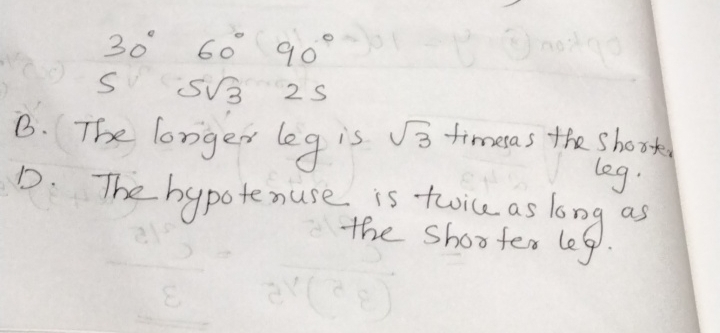 30° 60° 90°
S S√3 2S
B. The longer leg is √3 times as the shorter
leg.
D. The hypotenuse is twice as long as
the shorter leg.